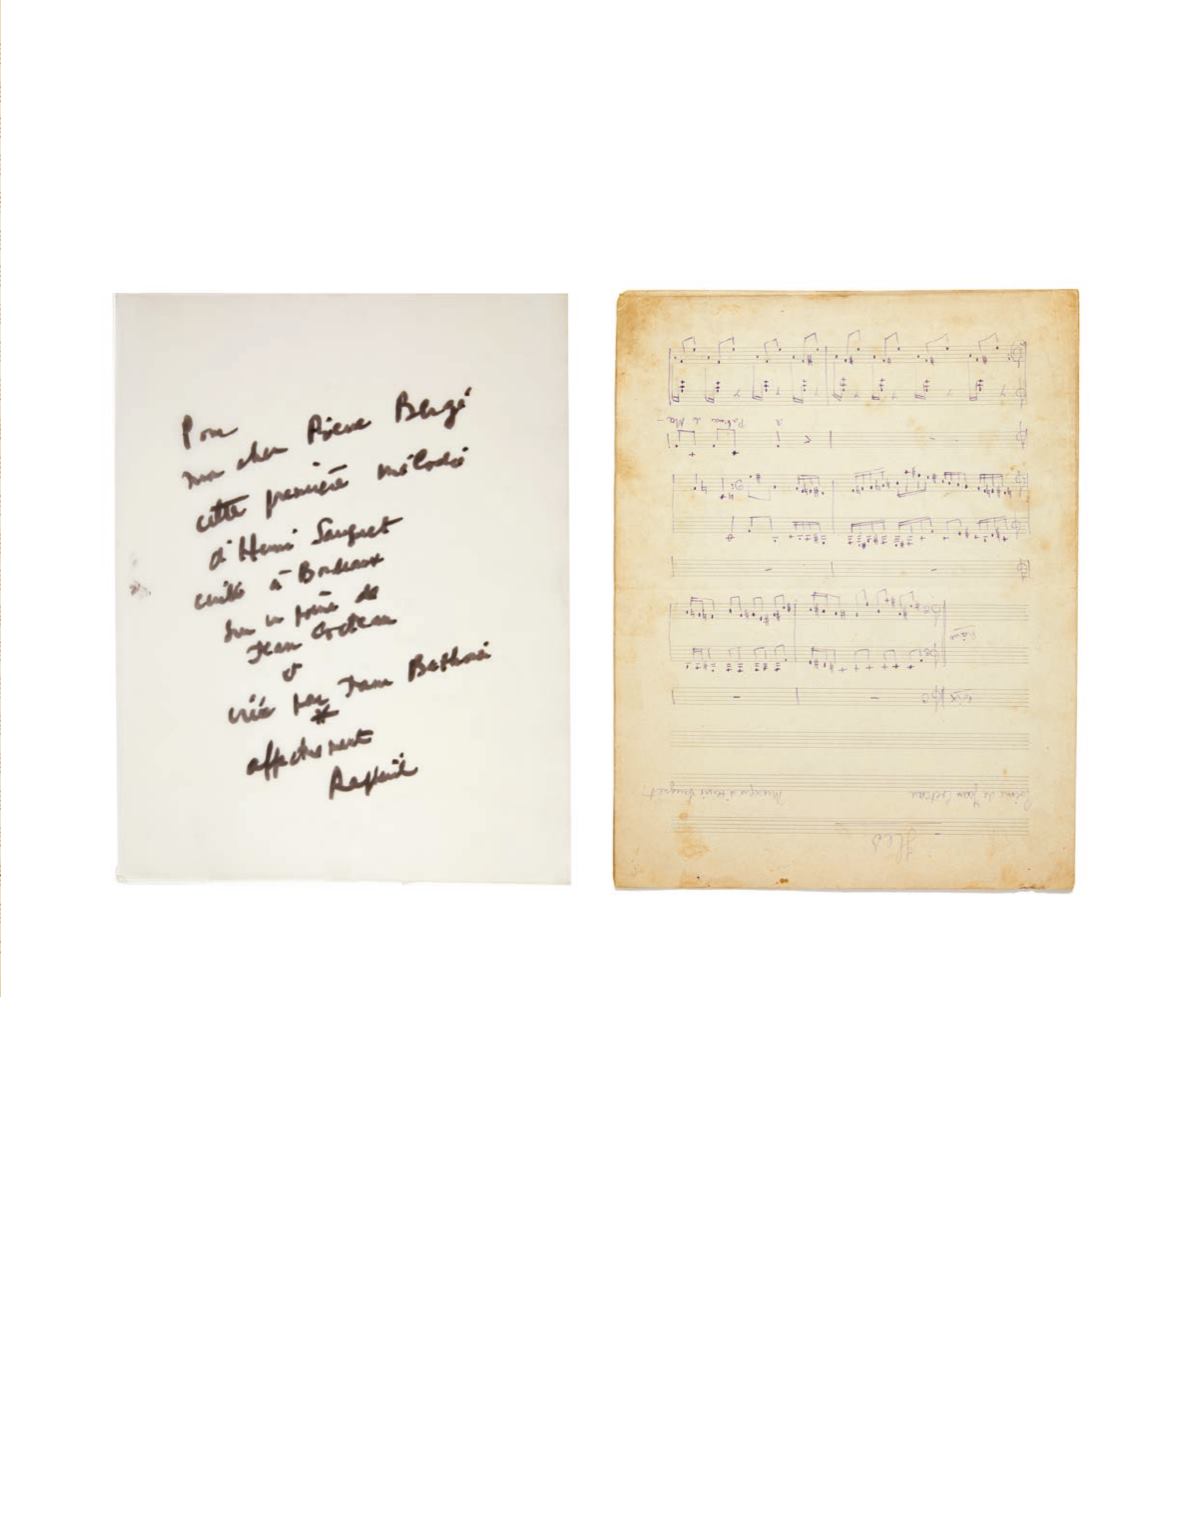 Pour
mon cher Pierre Bergé
cette première mélodie
d'Henri Sauguet
écrite à Bordeaux
sur un poème de
Jean Cocteau
et
créée par Jane Bathori
*
affectueusement
Raphaël
Iles
Poème de Jean Cocteau Musique d'Henri Sauguet
voix
Piano
à Palma de Ma-